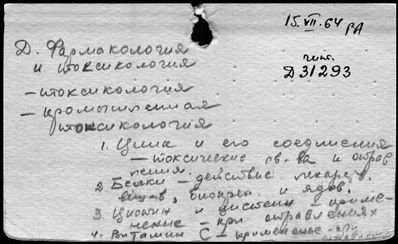 15.VII.64
РА
Д. Фармакология
и токсикология
чит.
Д31293
— токсикология
— промышленная
токсикология
1. Цинк и его соединения
— токсические св-ва и отрав
ления.
2 Белки — действие лекарств.
веществ, и ядов.
3 Цистин и цистеин — приме-
нение — при отравлениях
4. Витамин С — применение при